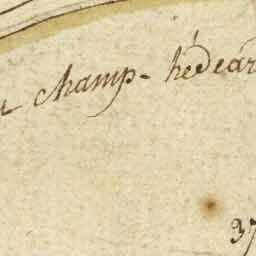 champ-hédéar
37